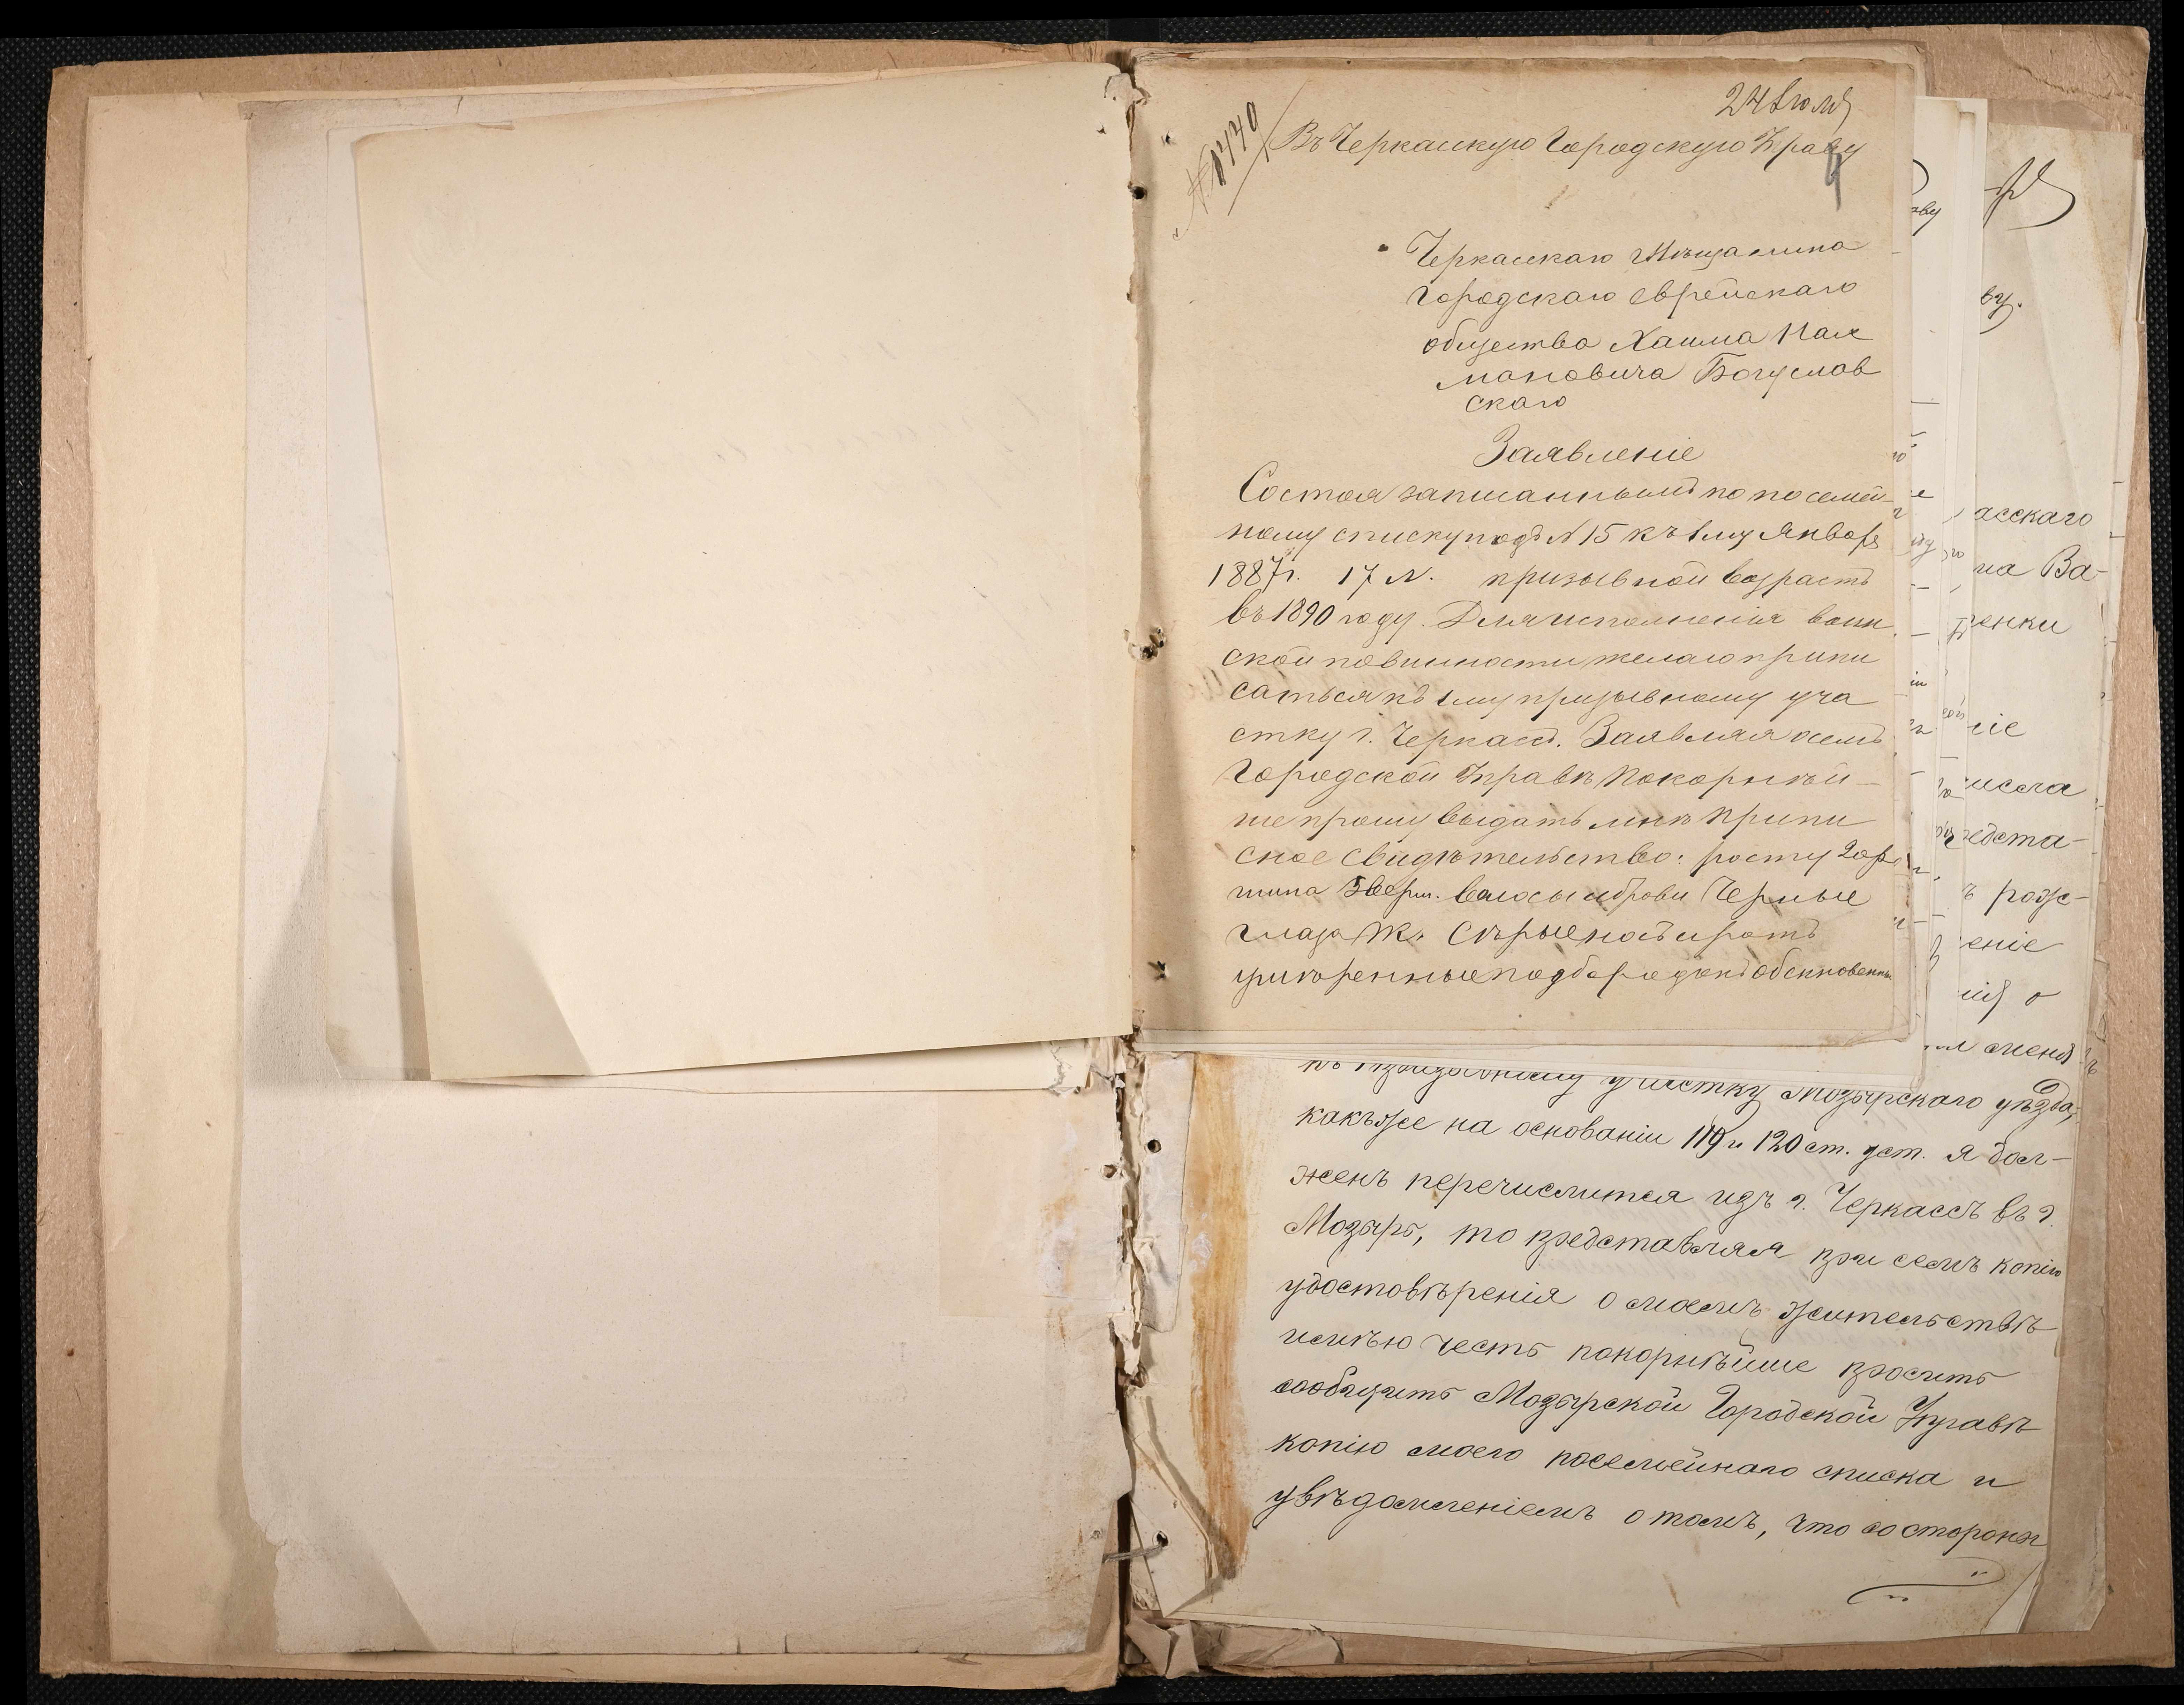 24 Июля
Въ Черкасскую Городскую Управу
4
Черкасскаго Мѣщанина
Городскаго Еврейскаго
общества Хаима Нах
мановича Богуслав
скаго
Заявленіе
Состоя записаннымъ по посемей-
ному списку подъ N 15 къ 1му Января
1887г. 17 л. призывной возрастъ
въ 1890 году. Для исполненія воин
ской повинности желаю припи
саться къ 1му призывному уча
стку г. Черкассъ. Заявляя о семъ
Городской Управѣ Покорнѣй-
ше прошу выдать мнѣ Припи
сное Свидѣтельство: росту 2 ар
шина 5 верш. волосы и брови Черные
глаза Сѣрые носъ и ротъ
умѣренные подбородокъ обыкновенны
участку Мозырскаго уѣзда,
какъ же на основаніи 119 и 120 ст. уст. я дол-
женъ перечислится изъ г. Черкассъ въ г.
Мозырь, то представляя при семъ копію
удостовѣренія о моемъ жительствѣ
имѣю честь покорнѣйше просить
сообщить Мозырской Городской Управѣ
копію моего посемейнаго списка и
увѣдомленіемъ о томъ, что со стороны
асскаго
на Ва-
енки
ніе
числа
редста-
ъ рож-
еніе
нія о
меня